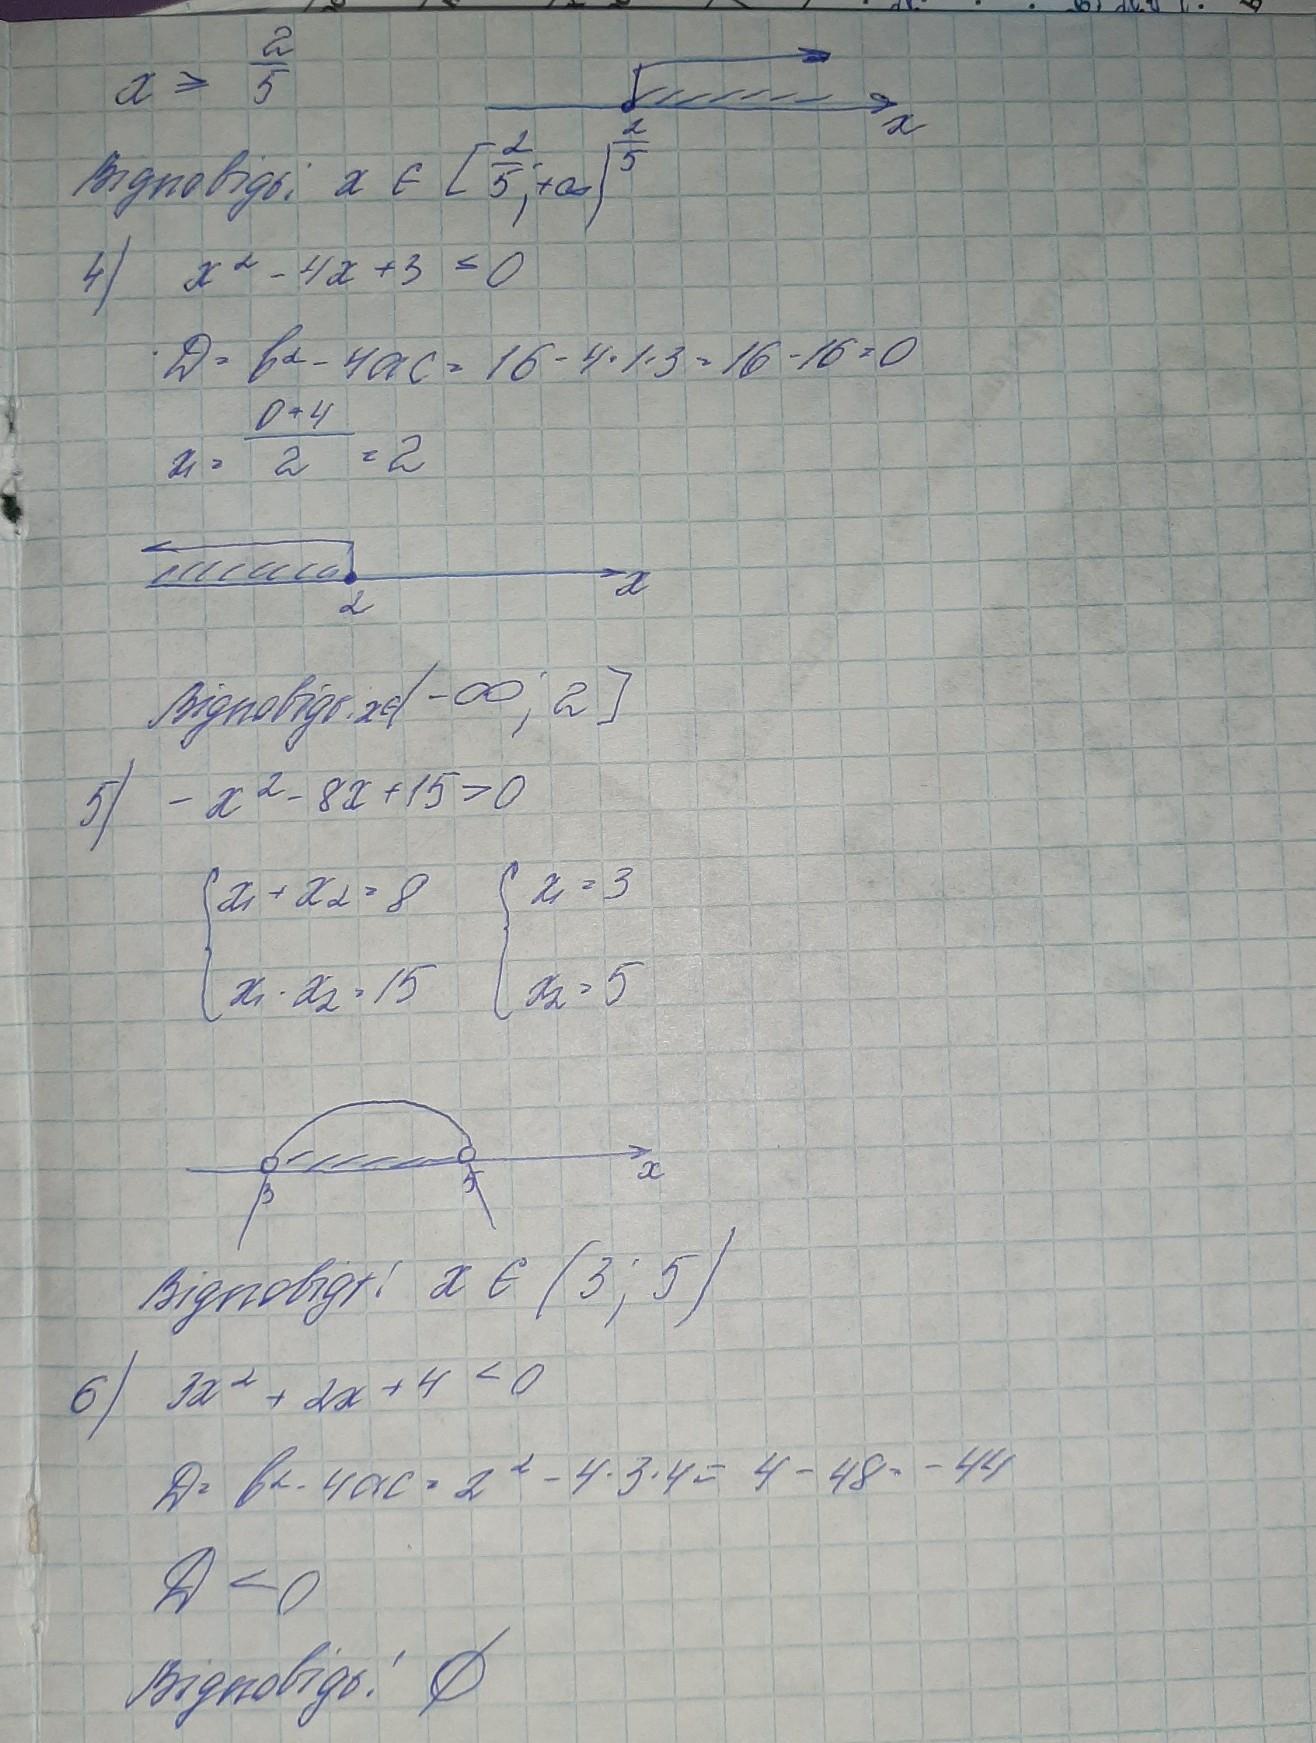 x ≥ 2/5
x
2/5
Відповідь: x ∈ [2/5; +∞)
4) x² - 4x + 3 ≤ 0
D = b² - 4ac = 16 - 4·1·3 = 16 - 16 = 0
x₁ = (0+4)/2 = 2
2 x
Відповідь: x∈(-∞; 2]
5) -x² - 8x + 15 > 0
{x₁ + x₂ = 8 {x₁ = 3
{x₁ · x₂ = 15 {x₂ = 5
3 5 x
Відповідь: x ∈ (3; 5)
6) 3x² + 2x + 4 < 0
D = b² - 4ac = 2² - 4·3·4 = 4 - 48 = -44
D < 0
Відповідь: ∅